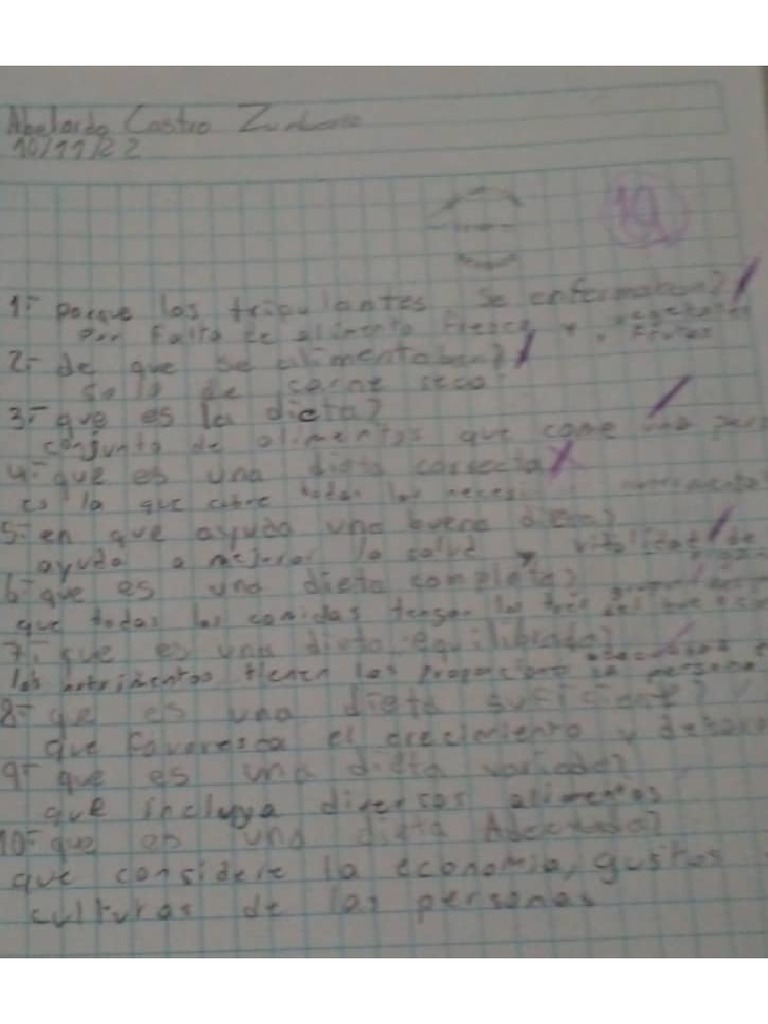 Abelardo Castro
10/11/22
10
1- Porque los tripulantes se enfermaban?
Por Falta de alimento Fresco y vegetales
Frutas
2- de que se alimentaban?
Solo de carne seca
3- que es la dieta?
conjunto de alimentos que come una
4- que es una dieta correcta
es la que cubre todas las
5- en que ayuda una buena dieta?
ayuda a mejorar la salud y vitalidad de
6- que es una dieta completa?
que todas las comidas tengan los tres
7- que es una dieta equilibrada?
los nutrimentos tienen las
8- que es una dieta suficiente?
que favoresca el crecimiento y
9- que es una dieta variada?
que incluya diversos alimentos
10- que es una dieta Adecuada?
que considere la economia, gustos
culturas de las personas